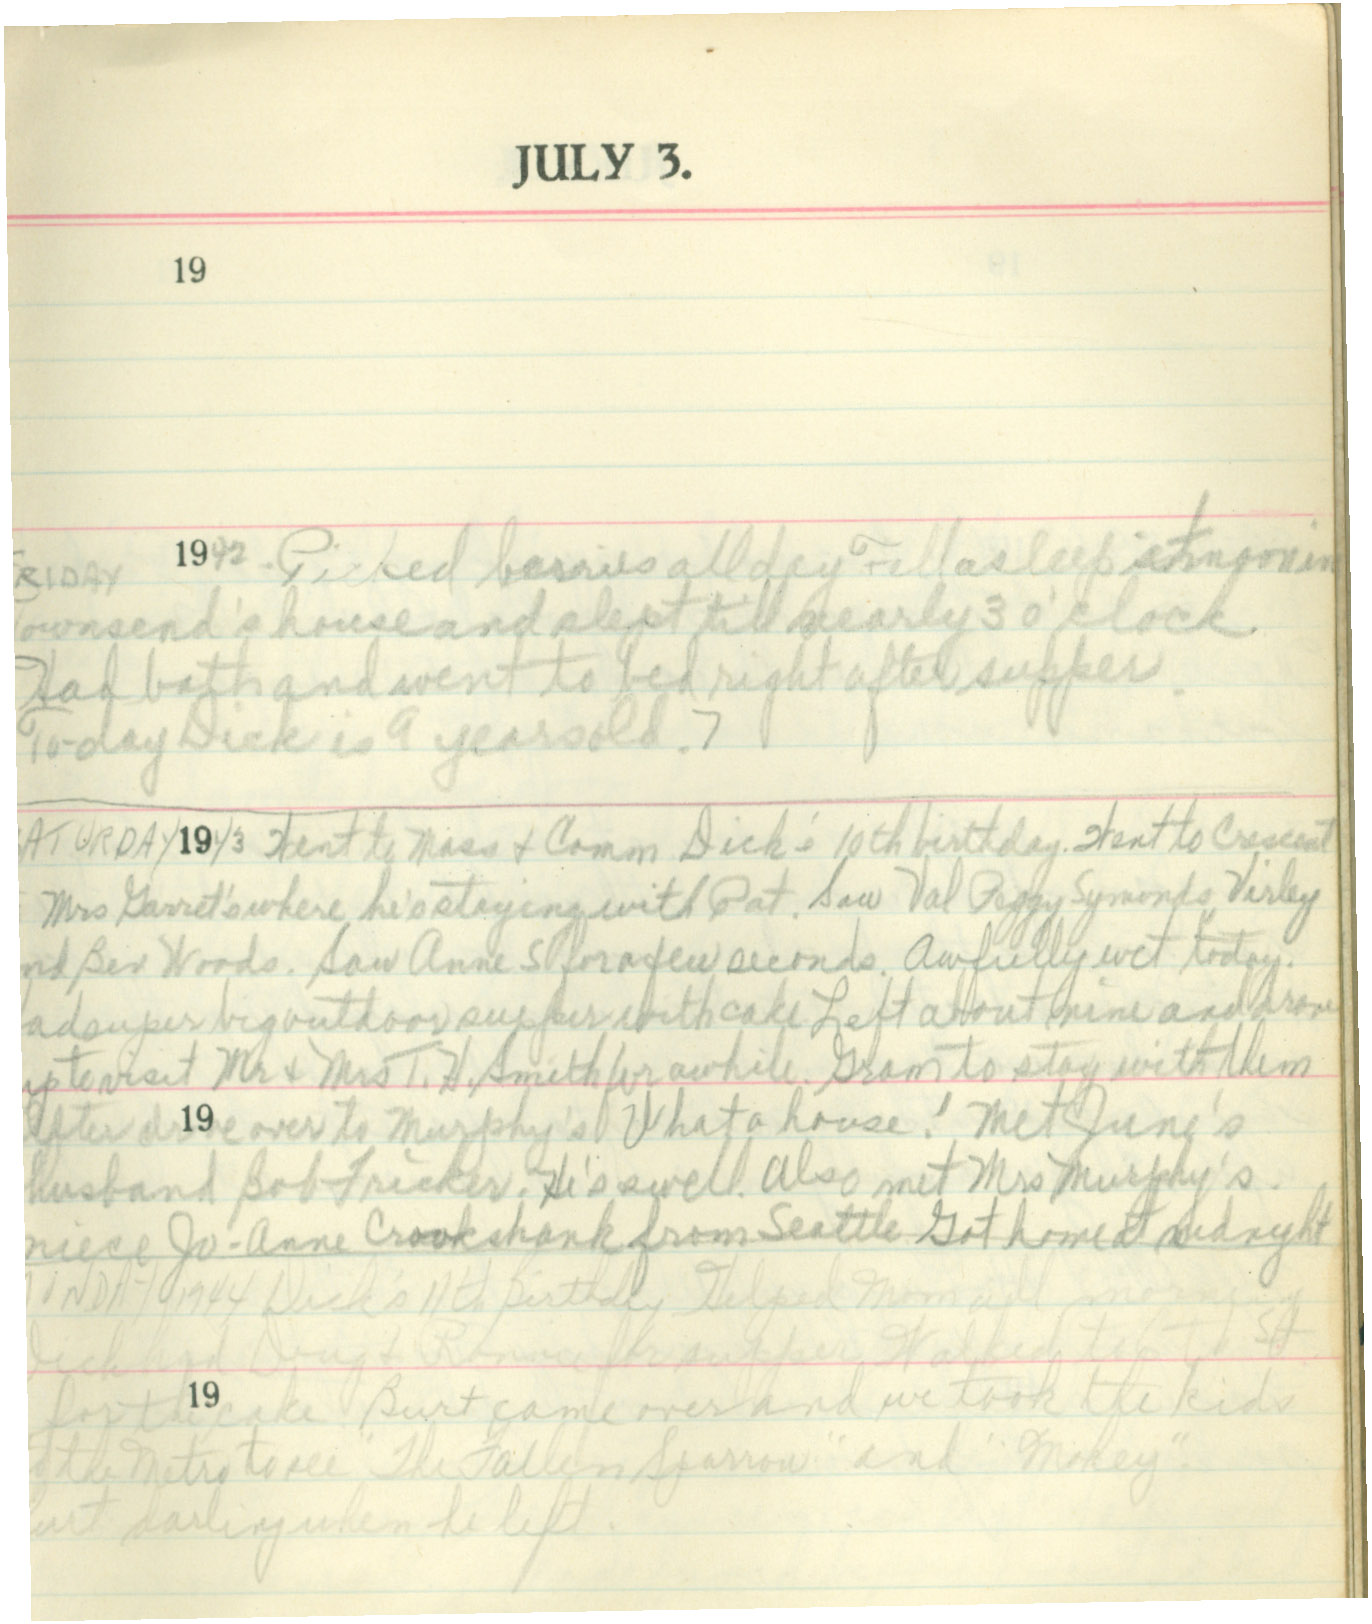 JULY 3.
19
FRIDAY 1942. Picked berries all day Fell asleep at noon in
Townsend's house and slept till nearly 3 o'clock.
Had bath and went to bed right after supper.
To-day Dick is 9 years old.
SATURDAY 1943 Went to Mass & Comm Dick's 10th birthday. Went to Crescent
Mrs Garret's where he's staying with Pat. Saw Val Peggy Symonds, Virley
nd Bev Woods. Saw Anne S for a few seconds. Awfully wet today.
ad super big outdoor supper with cake Left about nine and drove
up to visit Mr & Mrs T. H. Smith for awhile. Gram to stay with them
19
After drive over to Murphy's What a house! Met June's
husband Bob Fricker. He's swell. Also met Mrs Murphy's.
niece Jo-Anne Crookshank from Seattle Got home at midnight
UNDAY 1944 Dick's 11th Birthday Helped Mom all morning
Dick had Doug & Ronnie for supper. Walked to St
19
for the cake Burt came over and we took the kids
the Metro to see "The Fallen Sparrow" and "Mokey".
urt darling when he left.